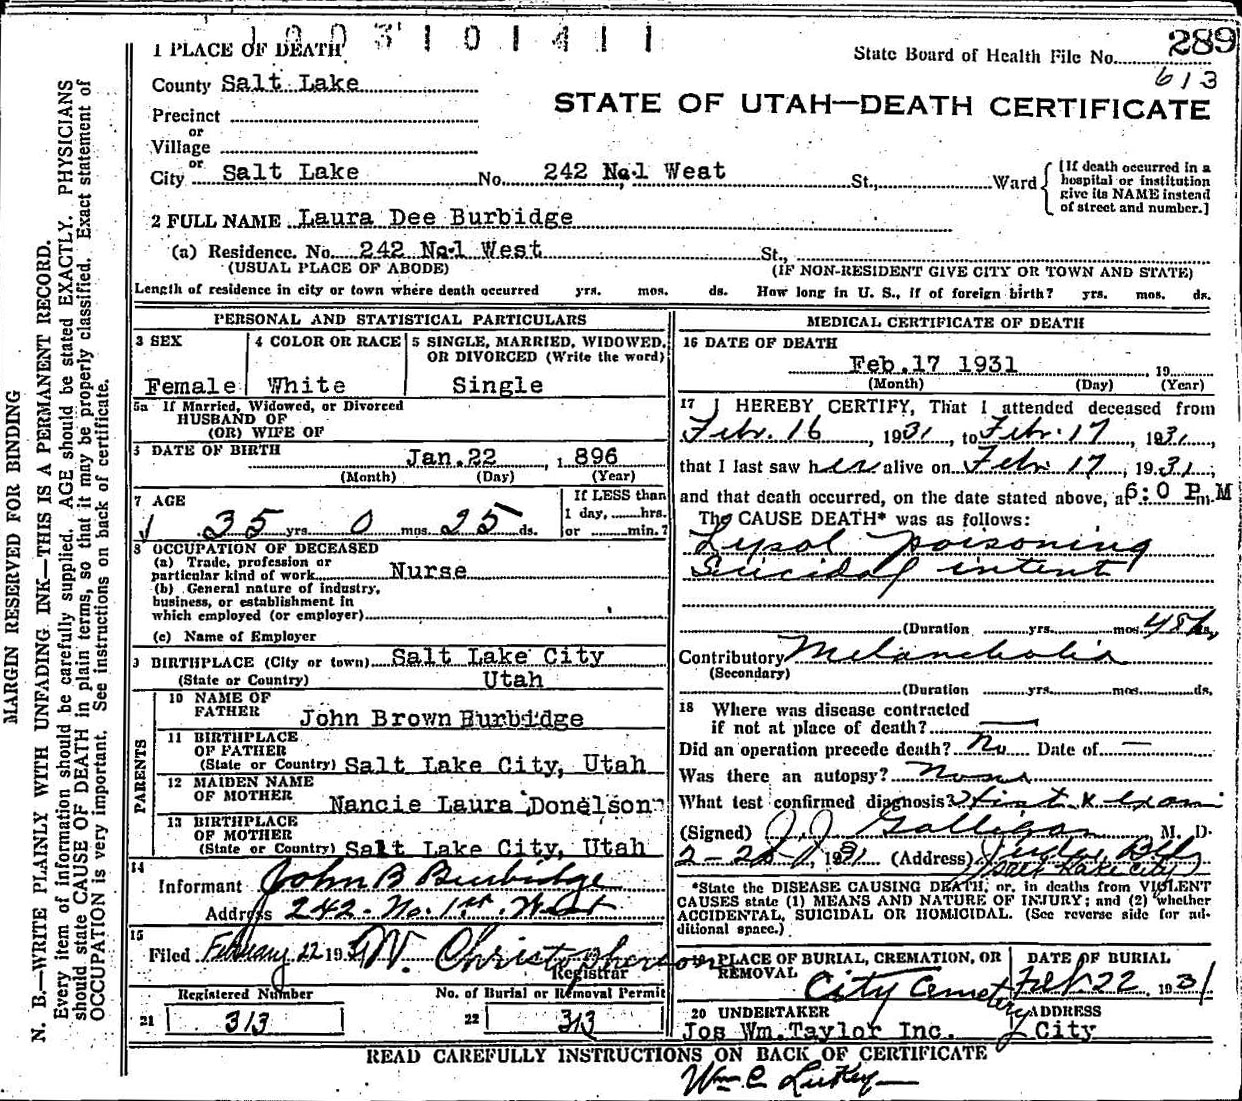 1003101411
1 PLACE OF DEATH
State Board of Health File No. 289
613
County Salt Lake
STATE OF UTAH—DEATH CERTIFICATE
Precinct
or
Village
or
City Salt Lake No. 242 No.1 West St., Ward
[If death occurred in a hospital or institution give its NAME instead of street and number.]
2 FULL NAME Laura Dee Burbidge
(a) Residence. No. 242 No.1 West St.,
(USUAL PLACE OF ABODE) (IF NON-RESIDENT GIVE CITY OR TOWN AND STATE)
Length of residence in city or town where death occurred yrs. mos. ds. How long in U. S., if of foreign birth? yrs. mos. ds.
PERSONAL AND STATISTICAL PARTICULARS
3 SEX
Female
4 COLOR OR RACE
White
5 SINGLE, MARRIED, WIDOWED,
OR DIVORCED (Write the word)
Single
5a If Married, Widowed, or Divorced
HUSBAND OF
(OR) WIFE OF
DATE OF BIRTH Jan.22 , 1896
(Month) (Day) (Year)
7 AGE
35 yrs. 0 mos. 25 ds.
If LESS than
1 day, ......hrs.
or ......min.?
8 OCCUPATION OF DECEASED
(a) Trade, profession or
particular kind of work Nurse
(b) General nature of industry,
business, or establishment in
which employed (or employer)
(c) Name of Employer
9 BIRTHPLACE (City or town) Salt Lake City
(State or Country) Utah
PARENTS
10 NAME OF
FATHER John Brown Burbidge
11 BIRTHPLACE
OF FATHER
(State or Country) Salt Lake City, Utah
12 MAIDEN NAME
OF MOTHER Nancie Laura Donelson
13 BIRTHPLACE
OF MOTHER
(State or Country) Salt Lake City, Utah
14
Informant John B Burbidge
Address 242 - No. 1st. West
15
Filed February 22 1931 W. Christopherson
Registrar
Registered Number No. of Burial or Removal Permit
21 313 22 313
MEDICAL CERTIFICATE OF DEATH
16 DATE OF DEATH
Feb.17 1931 , 19
(Month) (Day) (Year)
17 I HEREBY CERTIFY, That I attended deceased from
Feb. 16, 1931, to Feb. 17, 1931,
that I last saw her alive on Feb. 17, 1931,
and that death occurred, on the date stated above, at 6:0 P M m.
The CAUSE DEATH* was as follows:
Lysol poisoning
Suicidal intent
(Duration ......yrs. ......mos. 48 hrs.
Contributory Melancholia
(Secondary)
(Duration ......yrs. ......mos. ......ds.
18 Where was disease contracted
if not at place of death? —
Did an operation precede death? No Date of —
Was there an autopsy? None
What test confirmed diagnosis?
(Signed) J J Galligan M. D.
1931 (Address)
Salt Lake City
*State the DISEASE CAUSING DEATH, or, in deaths from VIOLENT
CAUSES state (1) MEANS AND NATURE OF INJURY; and (2) whether
ACCIDENTAL, SUICIDAL OR HOMICIDAL. (See reverse side for ad-
ditional space.)
PLACE OF BURIAL, CREMATION, OR
REMOVAL
City Cemetery
DATE OF BURIAL
Feb 22, 1931
20 UNDERTAKER
Jos Wm. Taylor Inc.
ADDRESS
City
READ CAREFULLY INSTRUCTIONS ON BACK OF CERTIFICATE
Wm C
MARGIN RESERVED FOR BINDING
N. B.—WRITE PLAINLY WITH UNFADING INK—THIS IS A PERMANENT RECORD.
Every item of information should be carefully supplied. AGE should be stated EXACTLY. PHYSICIANS
should state CAUSE OF DEATH in plain terms, so that it may be properly classified. Exact statement of
OCCUPATION is very important. See instructions on back of certificate.